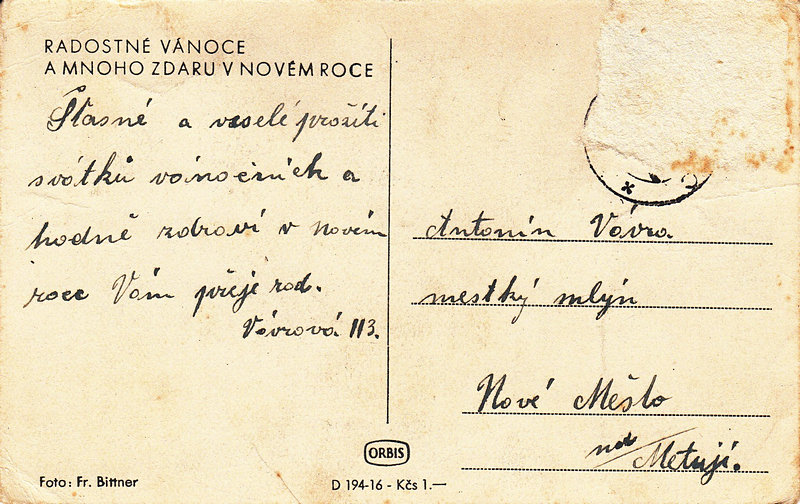 RADOSTNÉ VÁNOCE
A MNOHO ZDARU V NOVÉM ROCE
Šťasné a veselé prožití
svátků vánočních a
hodně zdraví v novém
roce Vám přeje rod.
Vávrová 113.
Antonín Vávra
mestký mlýn
Nové Město
nad Metují.
ORBIS
Foto: Fr. Bittner
D 194-16 - Kčs 1.—